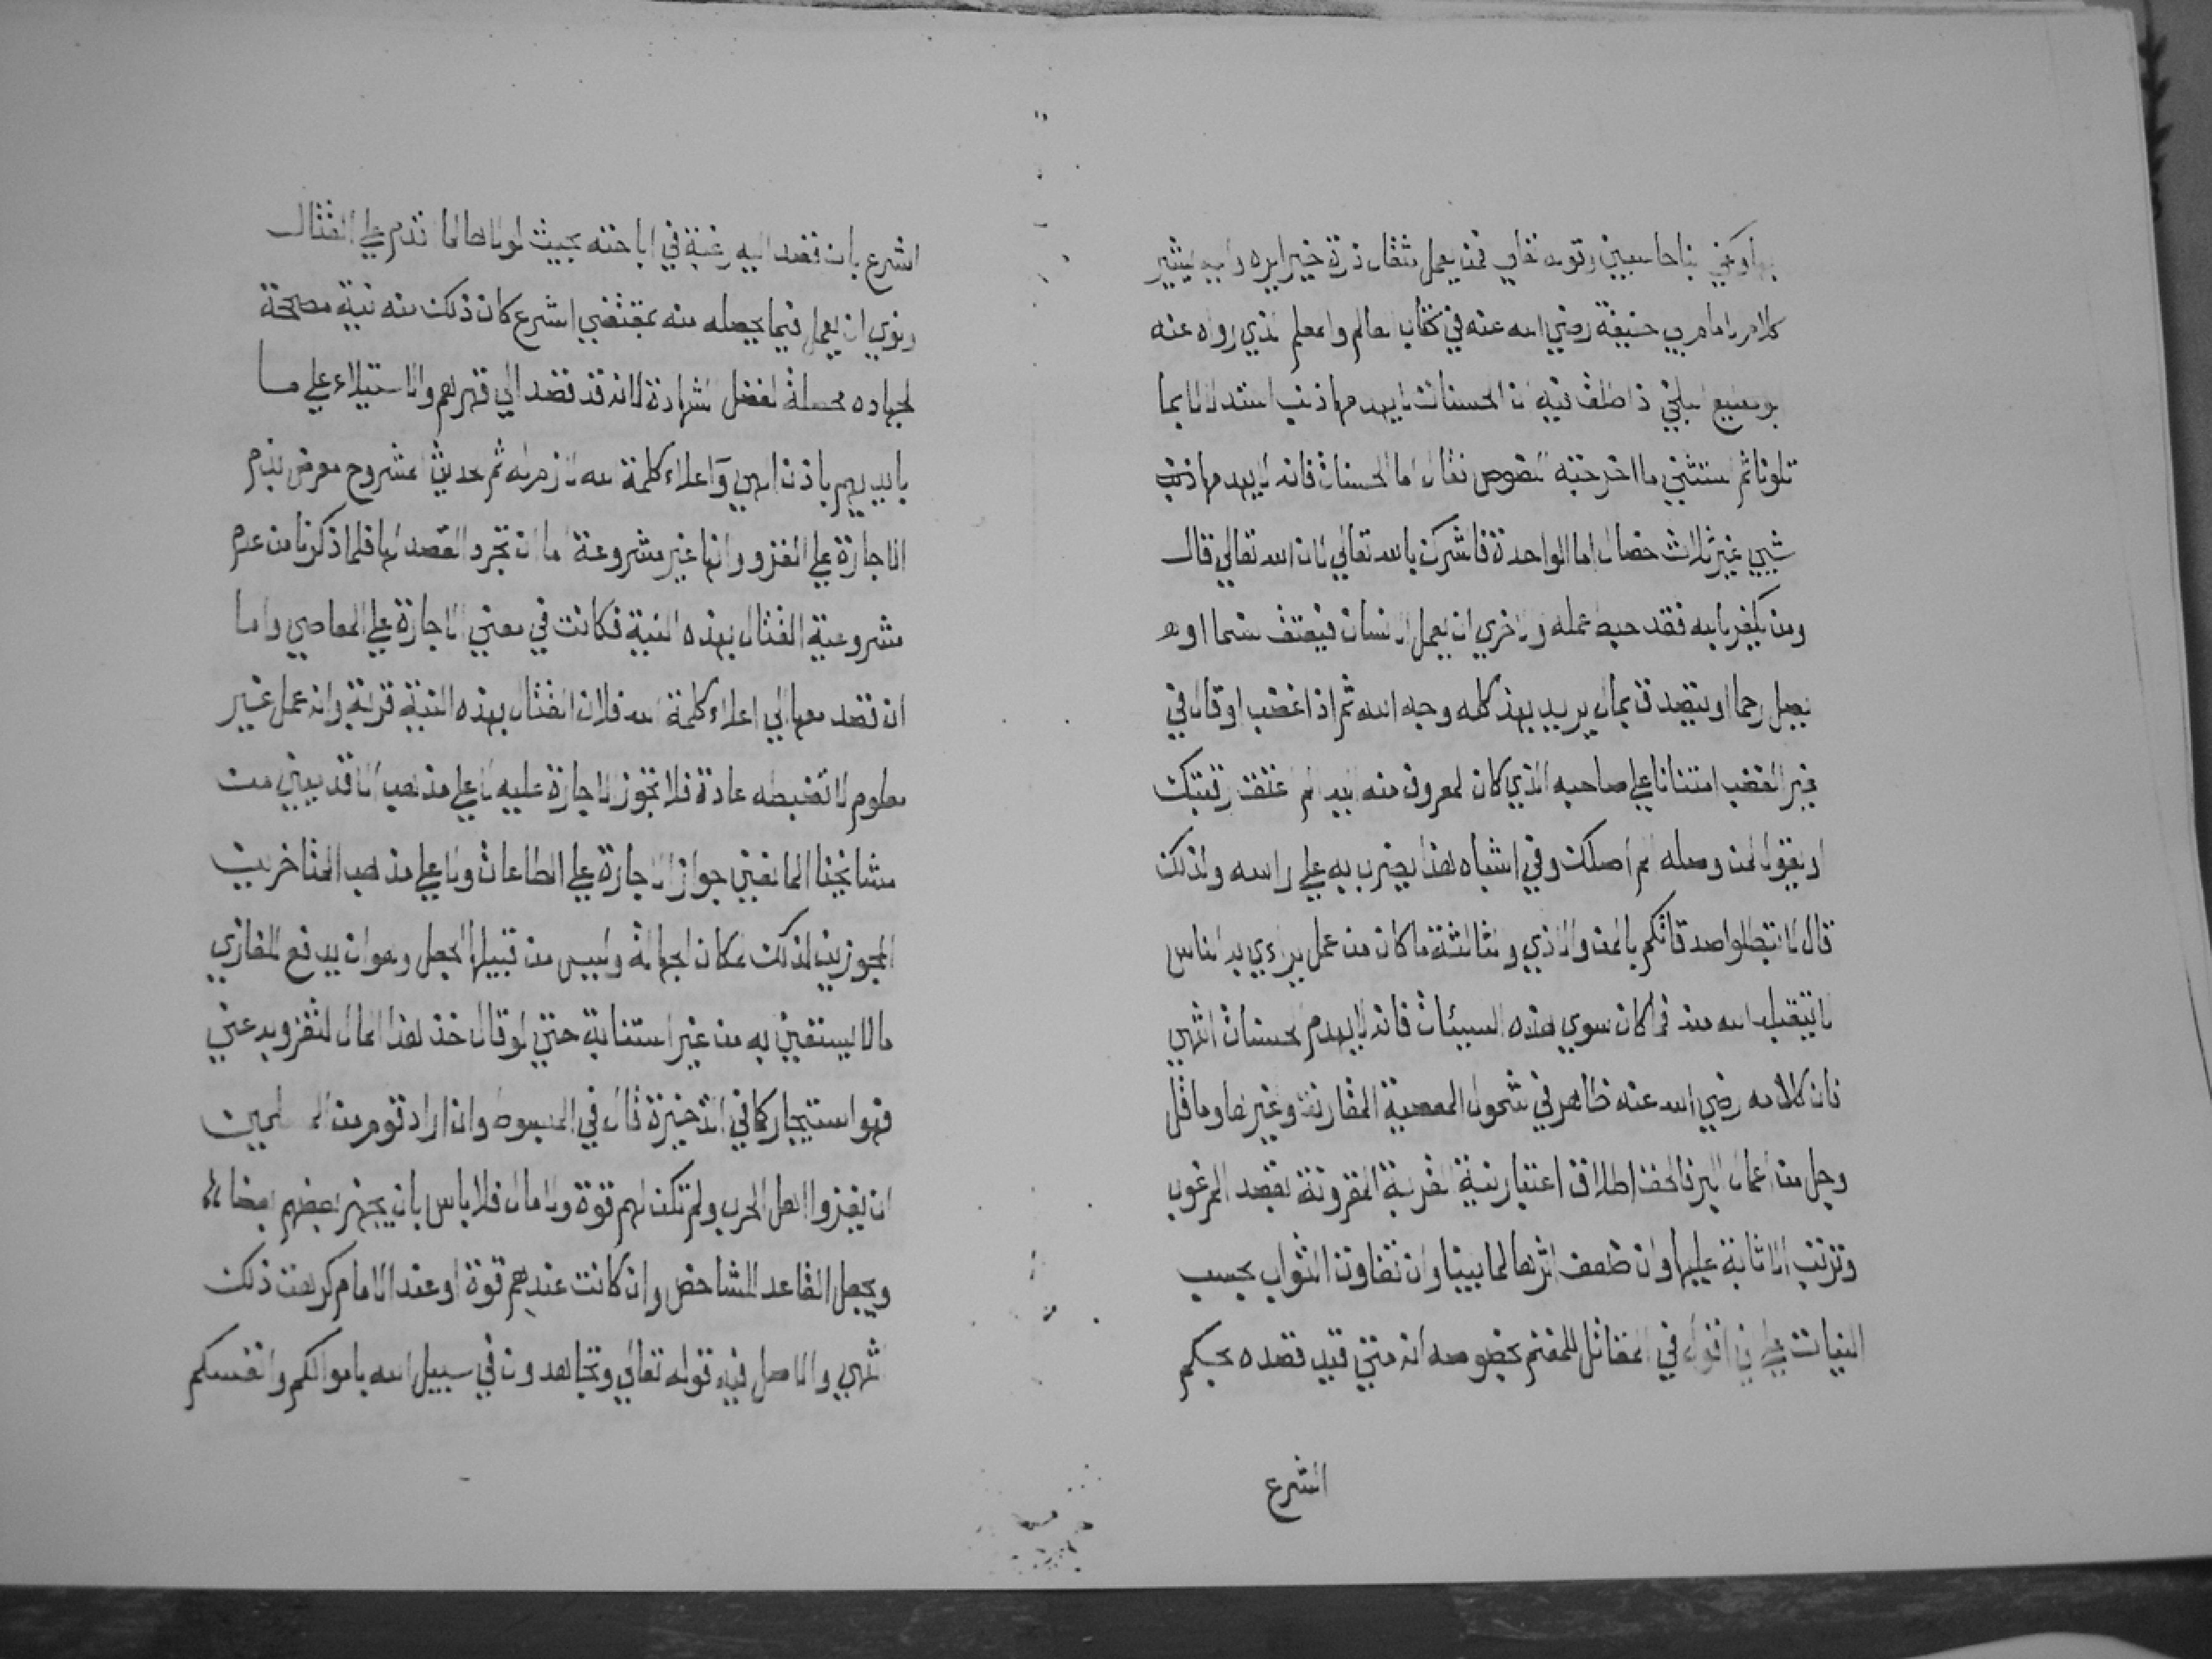 بها وكفي بنا حاسبين وقوله تعالي فمن يعمل مثقال ذرة خيرا يره واليه يشير
كلام الامام ابي حنيفة رضي الله عنه في كتاب العالم والمعلم الذي رواه عنه
ابو مطيع البلخي اذ اطلق فيه ان الحسنات لا يهدمها ذنب استدلالا بما
تلونا ثم استثني ما اخرجته النصوص فقال اما الحسنات فانه لا يهدمها ذنب
شيي غير ثلاث خصال اما الواحدة فالشرك بالله تعالي لان الله تعالي قال
ومن يكفر بالله فقد حبط عمله والاخري ان يعمل الانسان فيعتق نسما او
يصل رحما او يتصدق بمال يريد بهذا كله وجه الله ثم اذا غضب او قال في
غير الغضب امتنانا علي صاحبه الذي كان المعروف منه اليه الم اعتق رقبتك
او يقول لمن وصله الم اصلك وفي اشباه هذا يضرب به علي راسه ولذلك
قال لا تبطلوا صدقاتكم بالمن والاذي والثالثة ما كان من عمل يراءي به الناس
لا يتقبل الله منه فما كان سوي هذه السيئات فانه لا يهدم الحسنات انتهي
فان كلامه رضي الله عنه ظاهر في شمول المعصية المقارنة وغيرها وما قل
وجل من اعمال البر فالحق اطلاق اعتبار نية القربة المقرونة بقصد المرغوب
وترتب الاثابة عليها وان ضعف اثرها لما بينا وان تفاوت الثواب بحسب
النيات علي اني اقول في المقاتل للمغنم بخصوصه انه متي قيد قصده بحكم
الشرع
الشرع بان قصد اليه رغبة في اباحته بحيث لولاها لما اقدم علي القتال
ونوي ان يعمل فيما يحصله منه بمقتضي الشرع كان ذلك منه نية مصححة
لجهاده محصلة لفضل الشهادة لانه قد قصد الي قهرهم والاستيلاء علي ما
بايديهم باذن الهي واعلاء كلمة الله لازم له ثم حديث المشروح معرض بذم
الاجارة علي الغزو وانها غير مشروعة اما ان تجرد القصد لها فلما ذكرنا من عدم
مشروعية القتال بهذه النية فكانت في معني الاجارة علي المعاصي واما
ان قصد معها الي اعلاء كلمة الله فلان القتال بهذه النية قربة وانه عمل غير
معلوم لا تضبطه عادة فلا تجوز الاجارة عليه لا علي مذهب الاقدميين من
مشايخنا المانعين جواز الاجارة علي الطاعات ولا علي مذهب المتاخرين
المجوزين لذلك لمكان الجهالة وليس من قبيلها الجعل وهو ان يدفع للغازي
مالا يستعين به من غير استنابة حتي لو قال خذ هذا المال لتغزو به عني
فهو استيجار كما في الذخيرة قال في المبسوط وان اراد قوم من المسلمين
ان يغزوا اهل الحرب ولم تكن لهم قوة ولا مال فلا باس بان يجهز بعضهم بعضا
ويجعل القاعد للشاخص وان كانت عندهم قوة او عند الامام كرهت ذلك
انتهي والاصل فيه قوله تعالي وتجاهدون في سبيل الله باموالكم وانفسكم